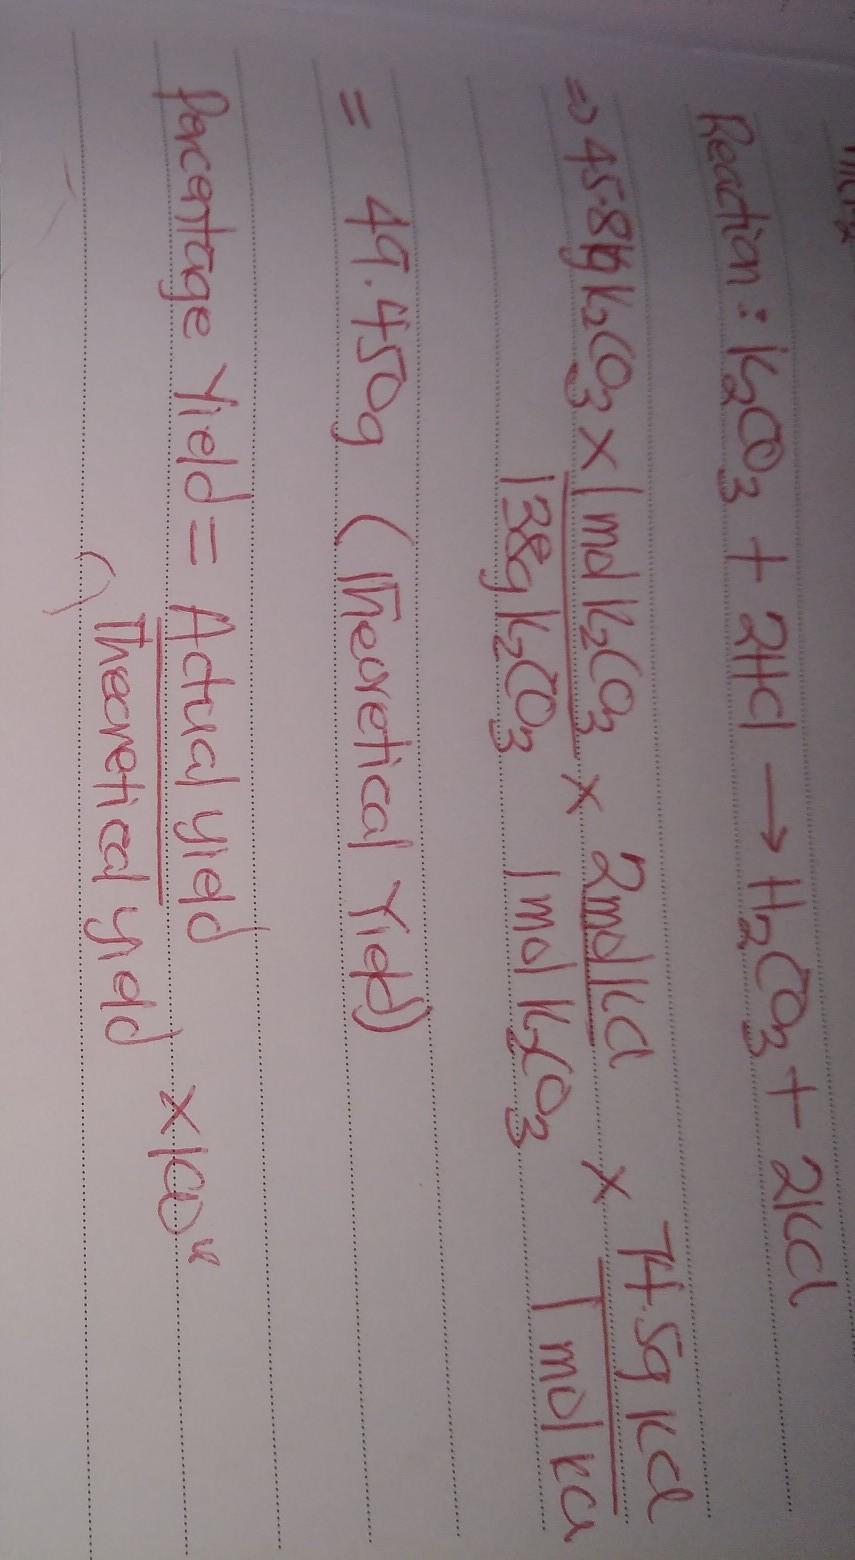 Reaction : K₂CO₃ + 2HCl → H₂CO₃ + 2KCl
⇒ 45.8g K₂CO₃ × 1mol K₂CO₃ × 2mol KCl × 74.5g KCl
138g K₂CO₃ 1mol K₂CO₃ 1mol KCl
= 49.450g (Theoretical Yield)
Percentage Yield = Actual yield × 100
Theoretical yield